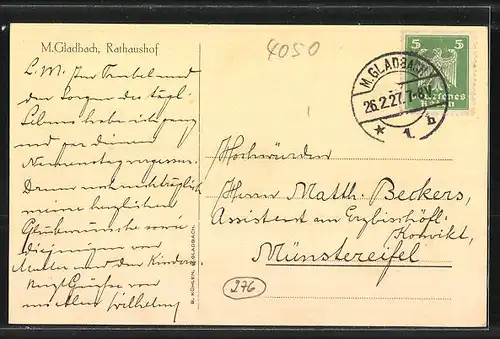 M.Gladbach, Rathaushof
4050
L. M. Im Trubel und
den Sorgen des tägl.
Lebens habe ich ganz
auf deinen
Namenstag vergessen.
Darum noch nachträglich
meine herzlichen
Glückwünsche sowie
diejenigen von
Mutter und den Kindern.
Grüße von
Wilhelm
B. KÜHLEN, M.GLADBACH.
5 5
Deutsches
Reich
M. GLADBACH
26.2.27. 7-8V.
* 1. b
Hochwürden
Herrn Matth. Beckers,
Assistent am Erzbischöfl.
Konvikt,
Münstereifel
276